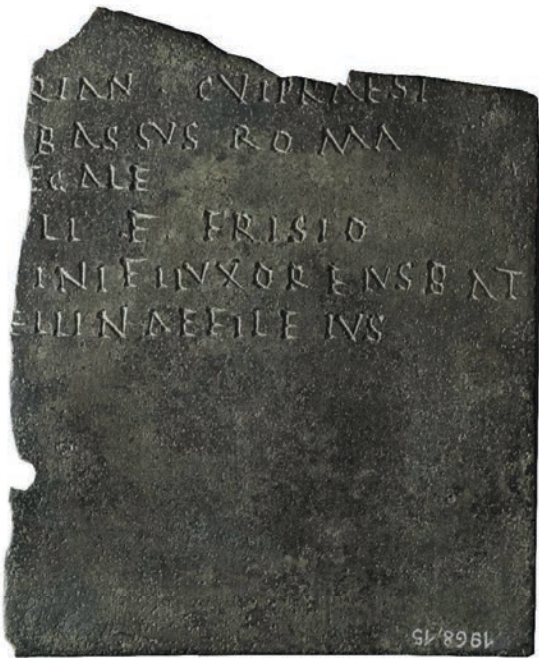 RIAN · CVIPRAESI
BASSVS ROMA
EGALE
LI F FRISIO
INIFILVXOREIVSBAT
ELLINAEFILEIVS
1968,15